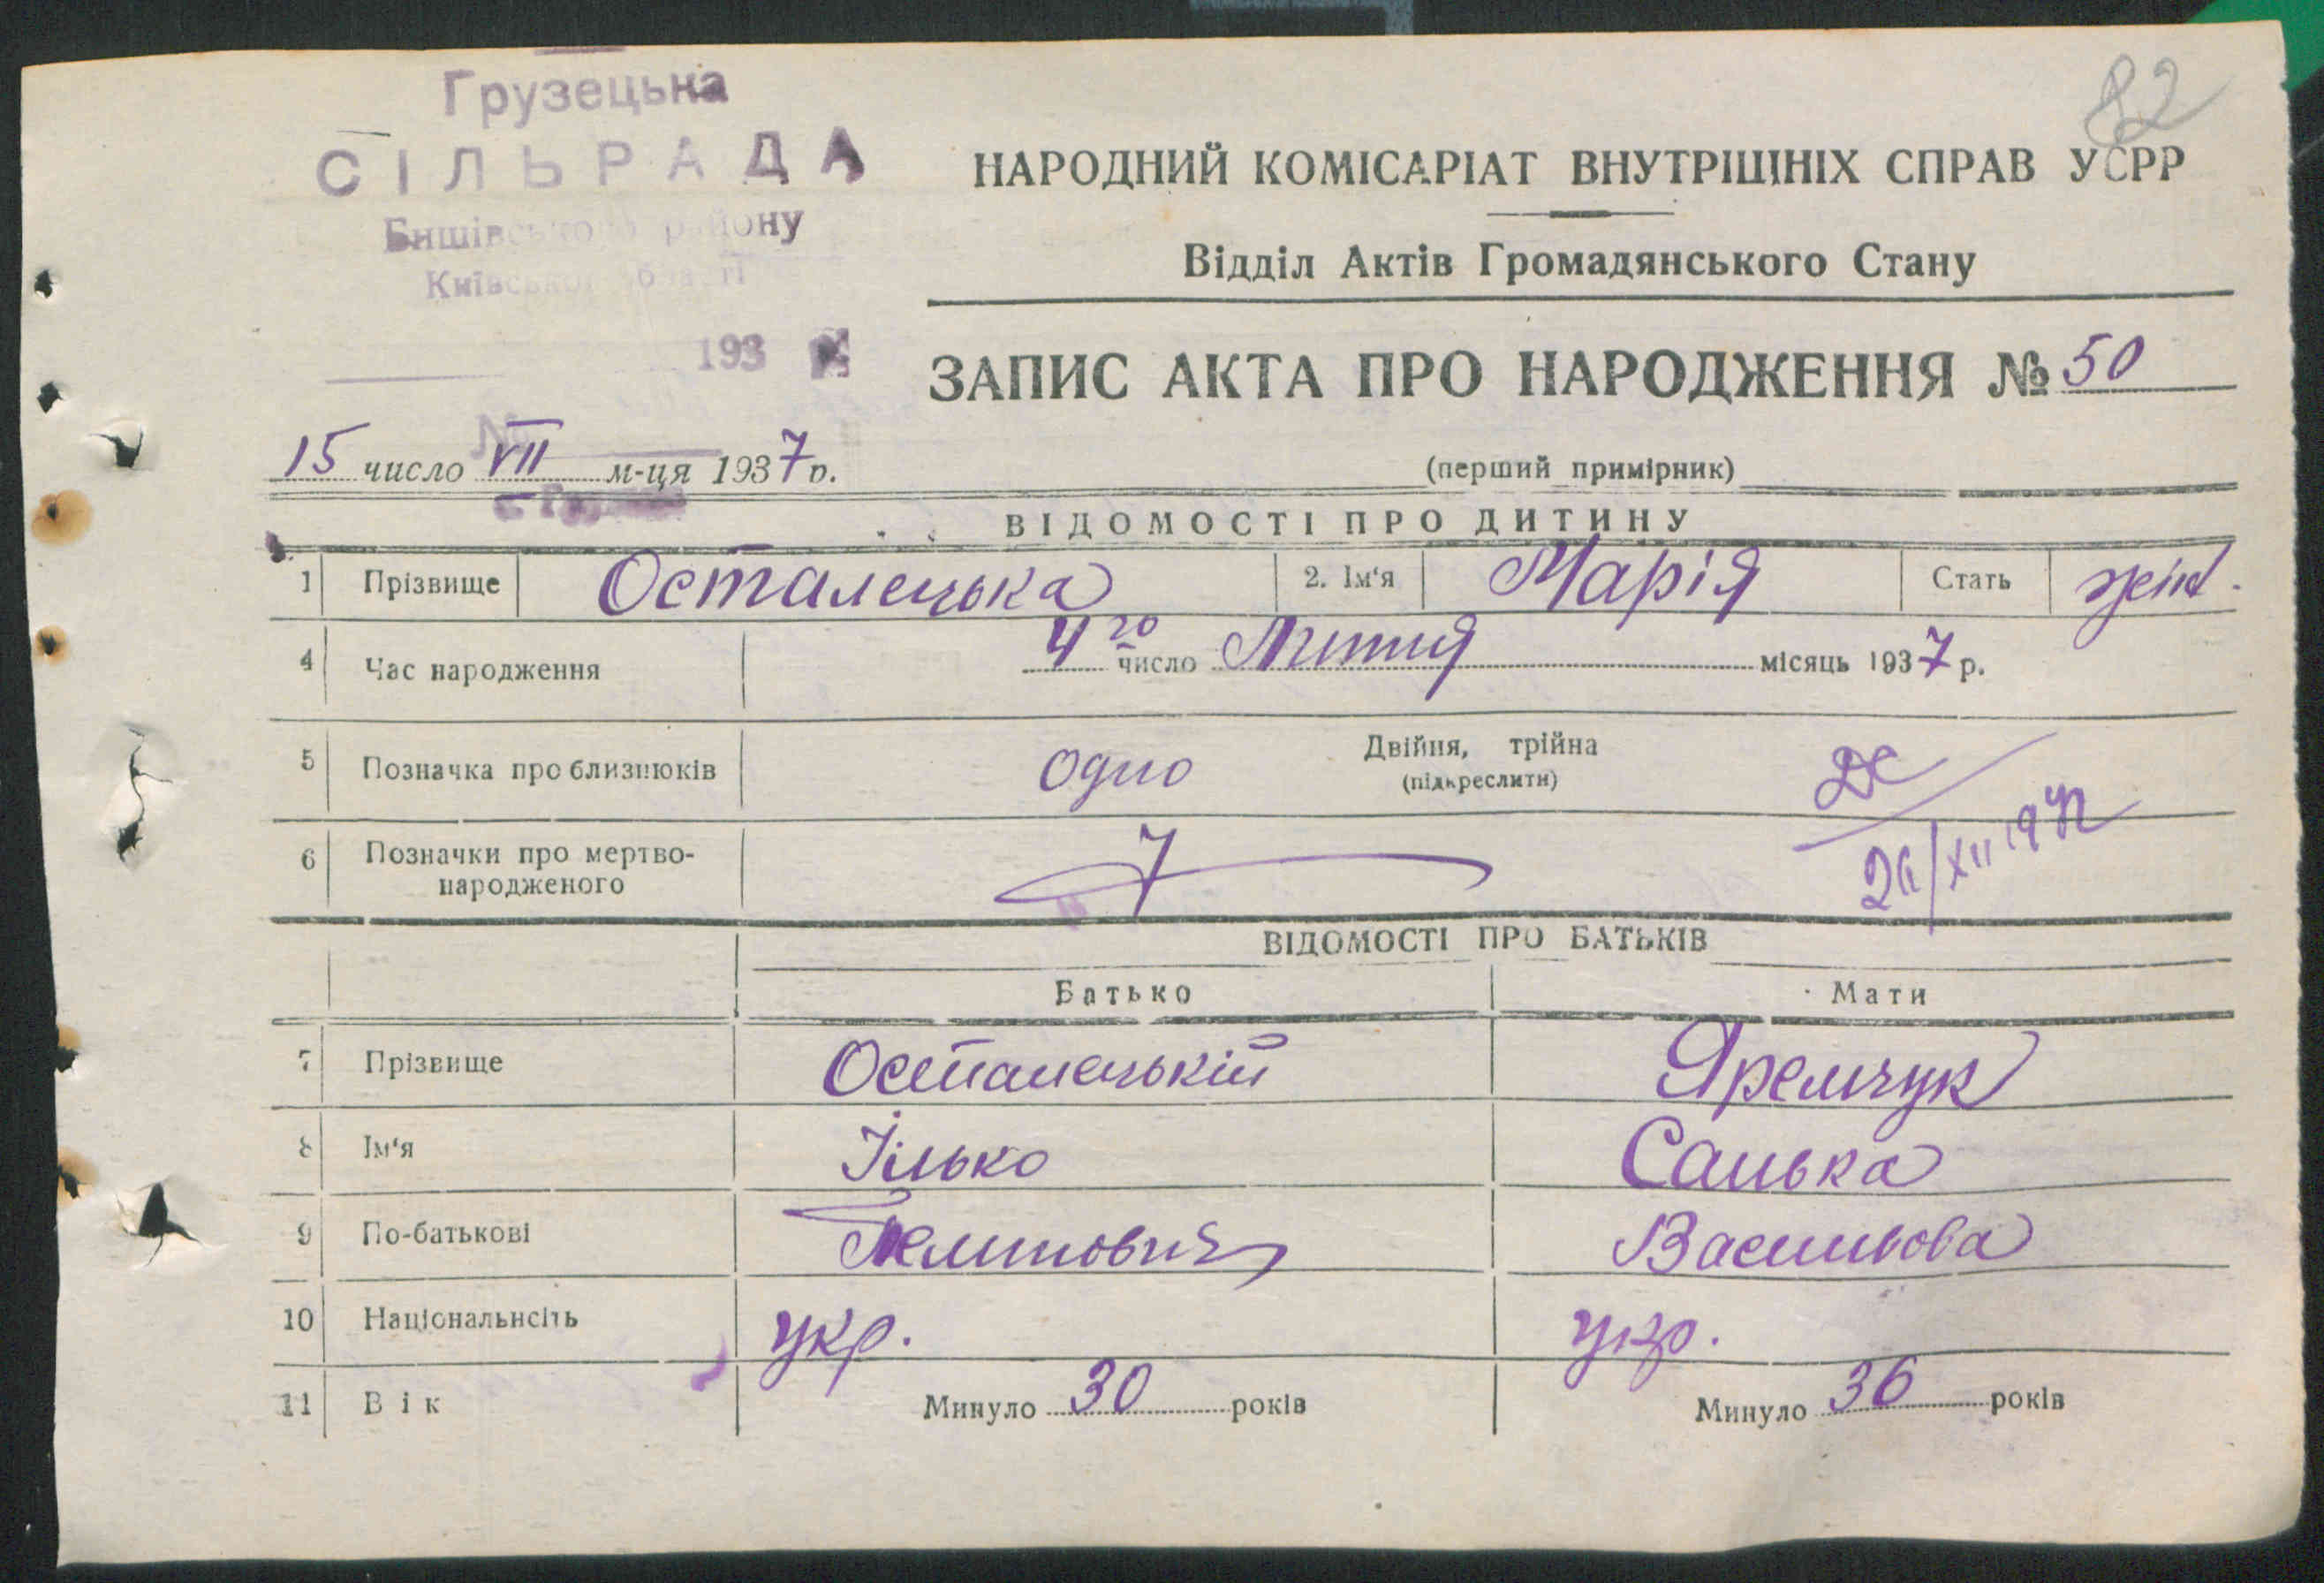 82
Грузецька
СІЛЬРАДА
Бишівського району
Київської області
193
№
НАРОДНИЙ КОМІСАРІАТ ВНУТРІШНІХ СПРАВ УСРР
Відділ Актів Громадянського Стану
ЗАПИС АКТА ПРО НАРОДЖЕННЯ № 50
15 число VII м-ця 1937 р.
(перший примірник)
ВІДОМОСТІ ПРО ДИТИНУ
1 Прізвище Осталецька 2. Ім'я Марія Стать жін.
4 Час народження 4го число Липня місяць 1937 р.
5 Позначка про близнюків одно Двійня, трійна
(підкреслити)
6 Позначки про мертво-
народженого
ВІДОМОСТІ ПРО БАТЬКІВ
Батько Мати
7 Прізвище Осталецькій Яремчук
8 Ім'я Ілько Санька
9 По-батькові Васильова
10 Національнсіть укр. укр.
11 Вік Минуло 30 років Минуло 36 років